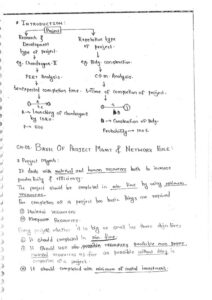 * INTRODUCTION :
Project
Research & Development type of project.
Repetative type of project.
eg. Chandrayan-II
eg. Bldg. construction.
PERT Analysis.
CPM Analysis.
3-Expected completion time.
1-Time of completion of project.
A- Launching of chandrayan by ISRO.
A- Construction of Bldg.
P = 50%
Probability = 100%
CH-01 BASIS OF PROJECT MGMT & NETWORK TECH.
* Project Mgmt :
It deals with material and human resources both to increase
productivity & efficiency.
The project should be completed in min time by using optimum
resources.
For completion of a project two basic things are required
① Material resources
② Manpower Resources
Every project whether it is big or small has three objectives
① It should completed in min time.
② It should use also possible resources possible man power,
material resources as far as possible without delay in
completion of a project.
③ It should completed with minimum of capital investment.